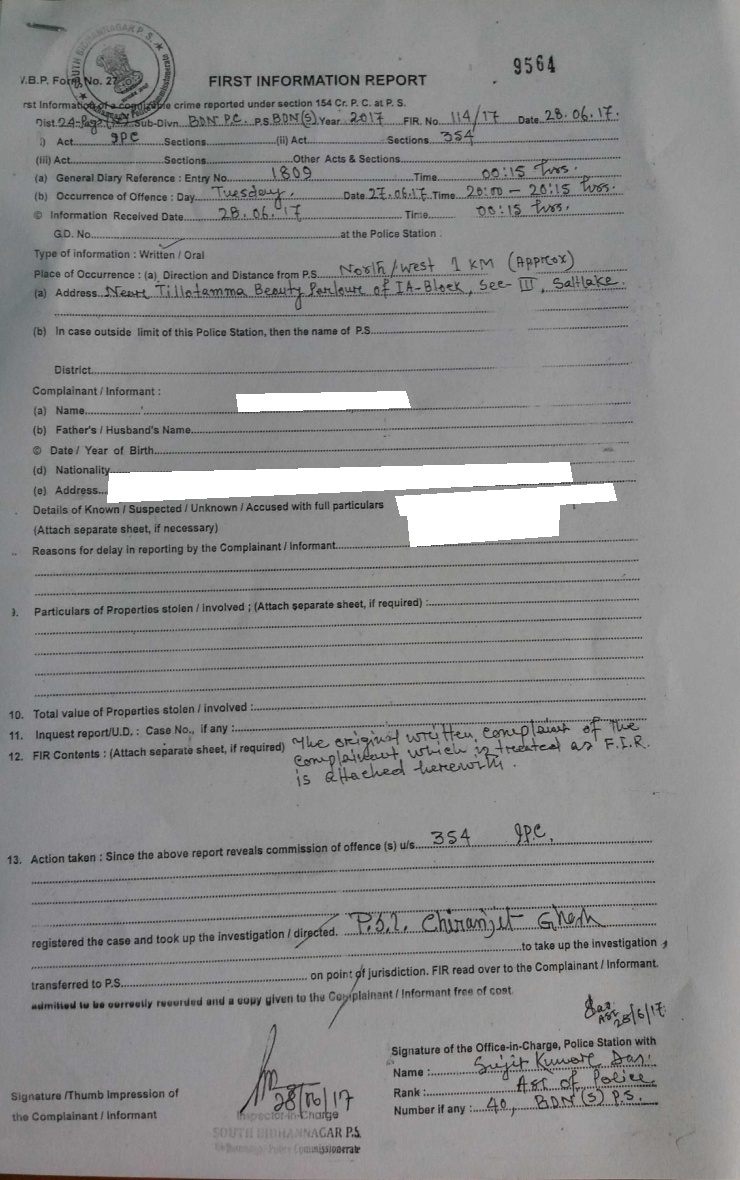 9564
FIRST INFORMATION REPORT
W.B.P. Form No. 27
rst Information of a cognizable crime reported under section 154 Cr. P. C. at P. S.
Dist. 24-Pags Sub-Divn. BDN P.C. P.S. BDN(S) Year 2017 FIR. No. 114/17 Date 28.06.17.
i) Act IPC Sections (ii) Act Sections 354
(iii) Act Sections Other Acts & Sections
(a) General Diary Reference : Entry No. 1809 Time 00:15 hrs.
(b) Occurrence of Offence : Day Tuesday. Date 27.06.17 Time 20:00 - 20:15 hrs.
© Information Received Date 28.06.17 Time 00:15 hrs.
G.D. No. at the Police Station .
Type of information : Written / Oral
Place of Occurrence : (a) Direction and Distance from P.S. North/West 1 KM (Approx)
(a) Address Near Tillotamma Beauty Parlour of IA-Block, Sec- III, Saltlake.
(b) In case outside limit of this Police Station, then the name of P.S.
District
Complainant / Informant :
(a) Name
(b) Father's / Husband's Name
© Date / Year of Birth
(d) Nationality
(e) Address
Details of Known / Suspected / Unknown / Accused with full particulars
(Attach separate sheet, if necessary)
Reasons for delay in reporting by the Complainant / Informant
9. Particulars of Properties stolen / involved ; (Attach separate sheet, if required) :
10. Total value of Properties stolen / involved :
11. Inquest report/U.D. : Case No., if any :
12. FIR Contents : (Attach separate sheet, if required) The original written complaint of the
complainant which is treated as F.I.R.
is attached herewith.
13. Action taken : Since the above report reveals commission of offence (s) u/s 354 IPC.
registered the case and took up the investigation / directed. P.S.I. Chiranjit Ghosh
to take up the investigation
transferred to P.S. on point of jurisdiction. FIR read over to the Complainant / Informant.
admitted to be correctly recorded and a copy given to the Complainant / Informant free of cost.
28/6/17
Signature of the Office-in-Charge, Police Station with
Name : Sujit Kumar Das.
Rank : ASI of Police
Number if any : 40, BDN(S) P.S.
Signature /Thumb Impression of
the Complainant / Informant
28/06/17
Inspector-in-Charge
SOUTH BIDHANNAGAR P.S.
Bidhannagar Police Commissionerate